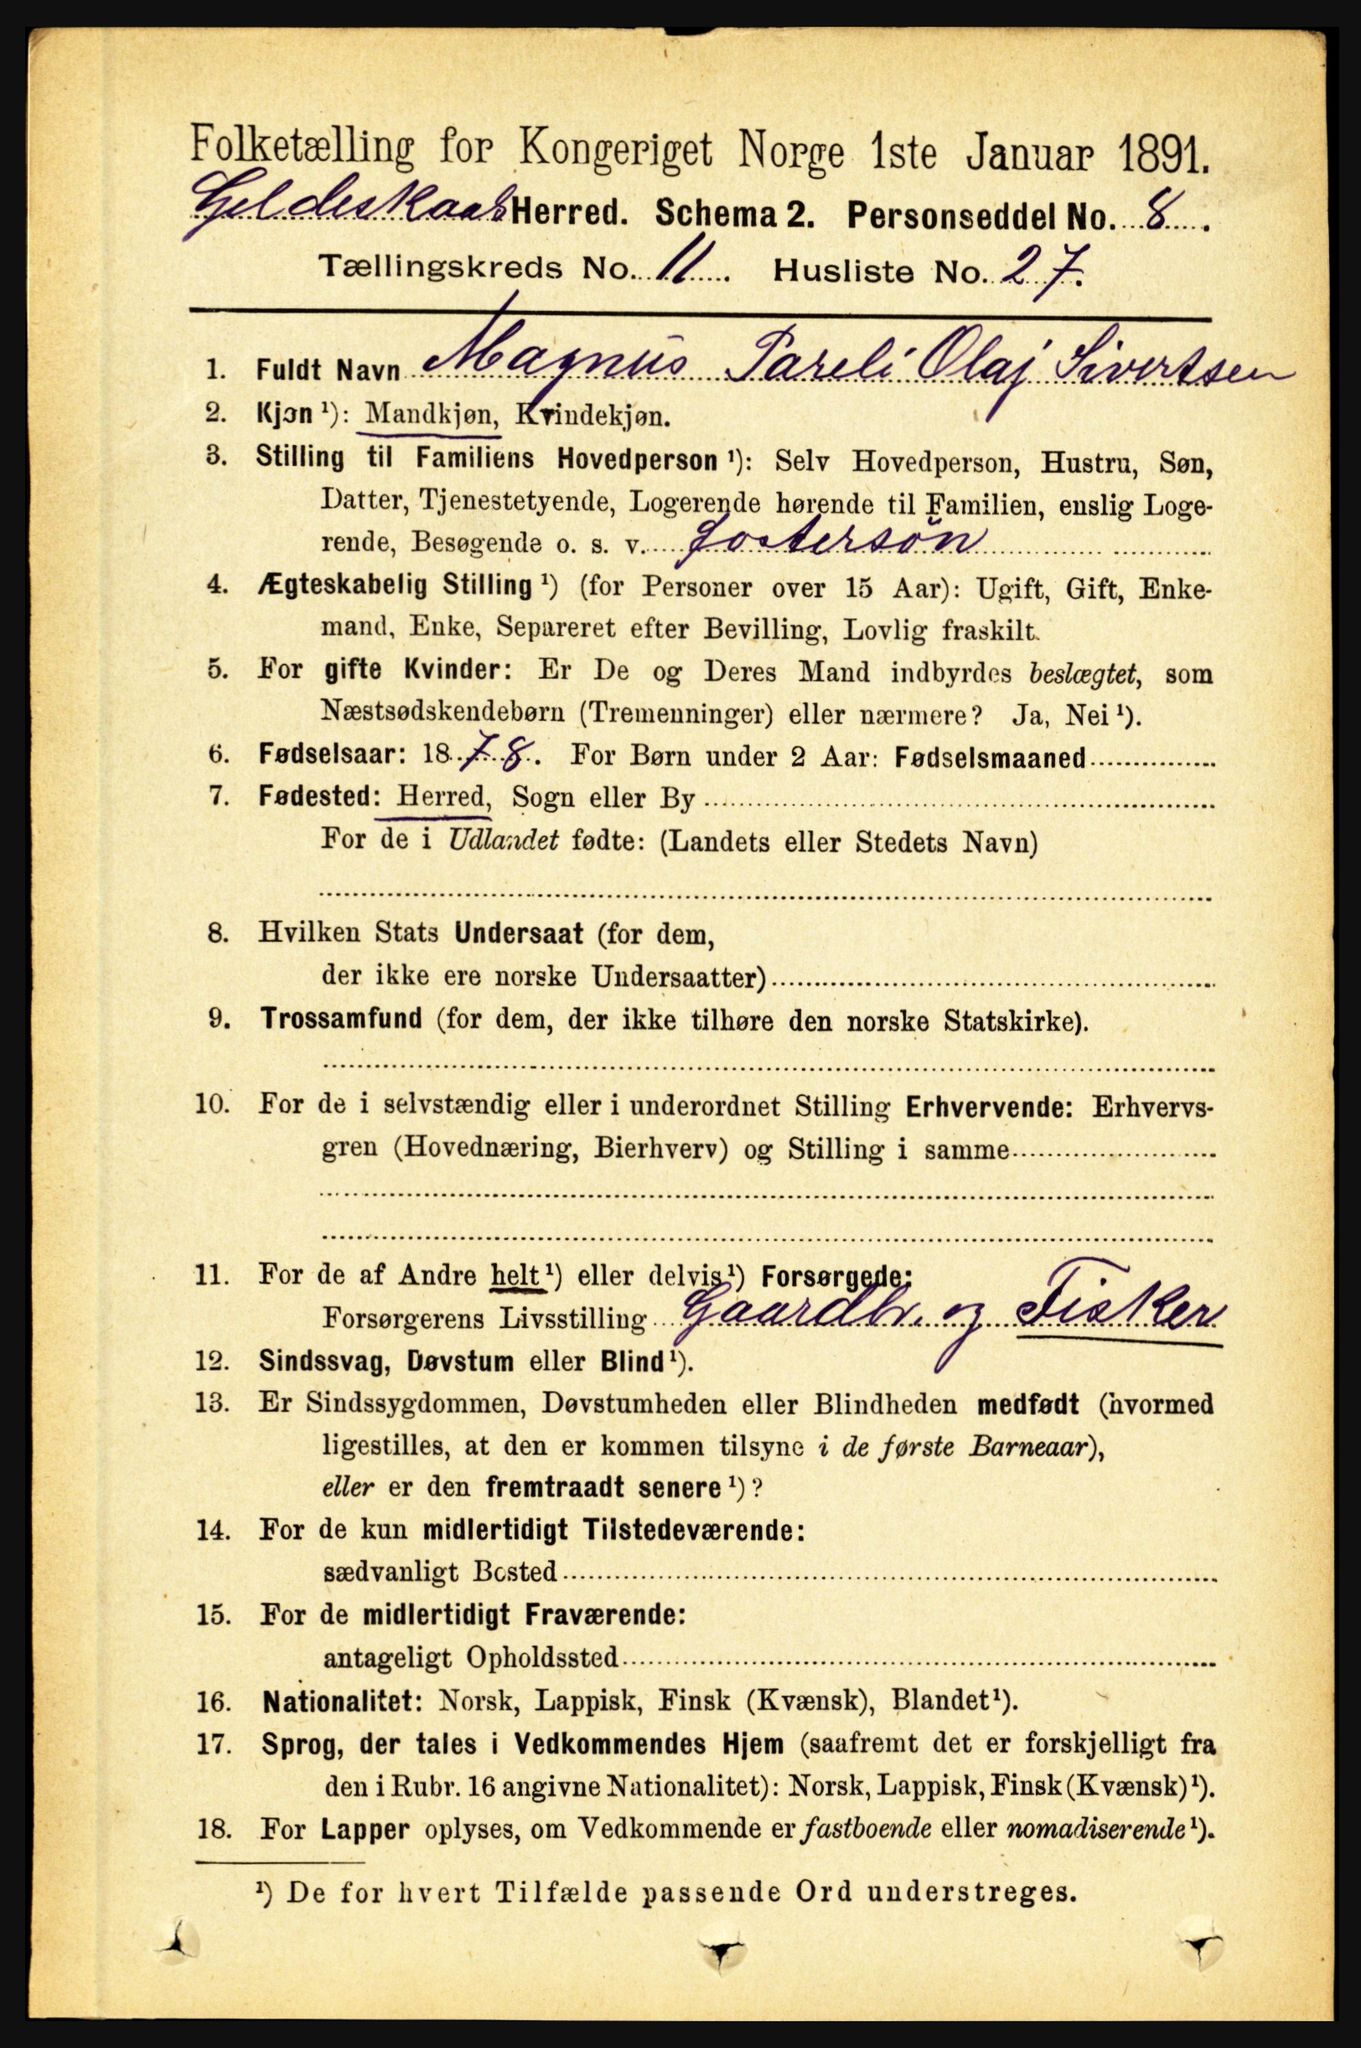 Folketælling for Kongeriget Norge 1ste Januar 1891.
Gildeskaal Herred. Schema 2. Personseddel No. 8.
Tællingskreds No. 11. Husliste No. 27.
1. Fuldt Navn Magnus Pareli Olaj Sivertsen
2. Kjøn¹): Mandkjøn, Kvindekjøn.
3. Stilling til Familiens Hovedperson¹): Selv Hovedperson, Hustru, Søn,
Datter, Tjenestetyende, Logerende hørende til Familien, enslig Loge-
rende, Besøgende o. s. v. Fostersøn
4. Ægteskabelig Stilling¹) (for Personer over 15 Aar): Ugift, Gift, Enke-
mand, Enke, Separeret efter Bevilling, Lovlig fraskilt.
5. For gifte Kvinder: Er De og Deres Mand indbyrdes beslægtet, som
Næstsødskendebørn (Tremenninger) eller nærmere? Ja, Nei¹).
6. Fødselsaar: 1878. For Børn under 2 Aar: Fødselsmaaned
7. Fødested: Herred, Sogn eller By
For de i Udlandet fødte: (Landets eller Stedets Navn)
8. Hvilken Stats Undersaat (for dem,
der ikke ere norske Undersaatter)
9. Trossamfund (for dem, der ikke tilhøre den norske Statskirke).
10. For de i selvstændig eller i underordnet Stilling Erhvervende: Erhvervs-
gren (Hovednæring, Bierhverv) og Stilling i samme
11. For de af Andre helt¹) eller delvis¹) Forsørgede:
Forsørgerens Livsstilling Gaardbr. og Fisker
12. Sindssvag, Døvstum eller Blind¹).
13. Er Sindssygdommen, Døvstumheden eller Blindheden medfødt (hvormed
ligestilles, at den er kommen tilsyne i de første Barneaar),
eller er den fremtraadt senere¹)?
14. For de kun midlertidigt Tilstedeværende:
sædvanligt Bosted
15. For de midlertidigt Fraværende:
antageligt Opholdssted
16. Nationalitet: Norsk, Lappisk, Finsk (Kvænsk), Blandet¹).
17. Sprog, der tales i Vedkommendes Hjem (saafremt det er forskjelligt fra
den i Rubr. 16 angivne Nationalitet): Norsk, Lappisk, Finsk (Kvænsk)¹).
18. For Lapper oplyses, om Vedkommende er fastboende eller nomadiserende¹).
¹) De for hvert Tilfælde passende Ord understreges.